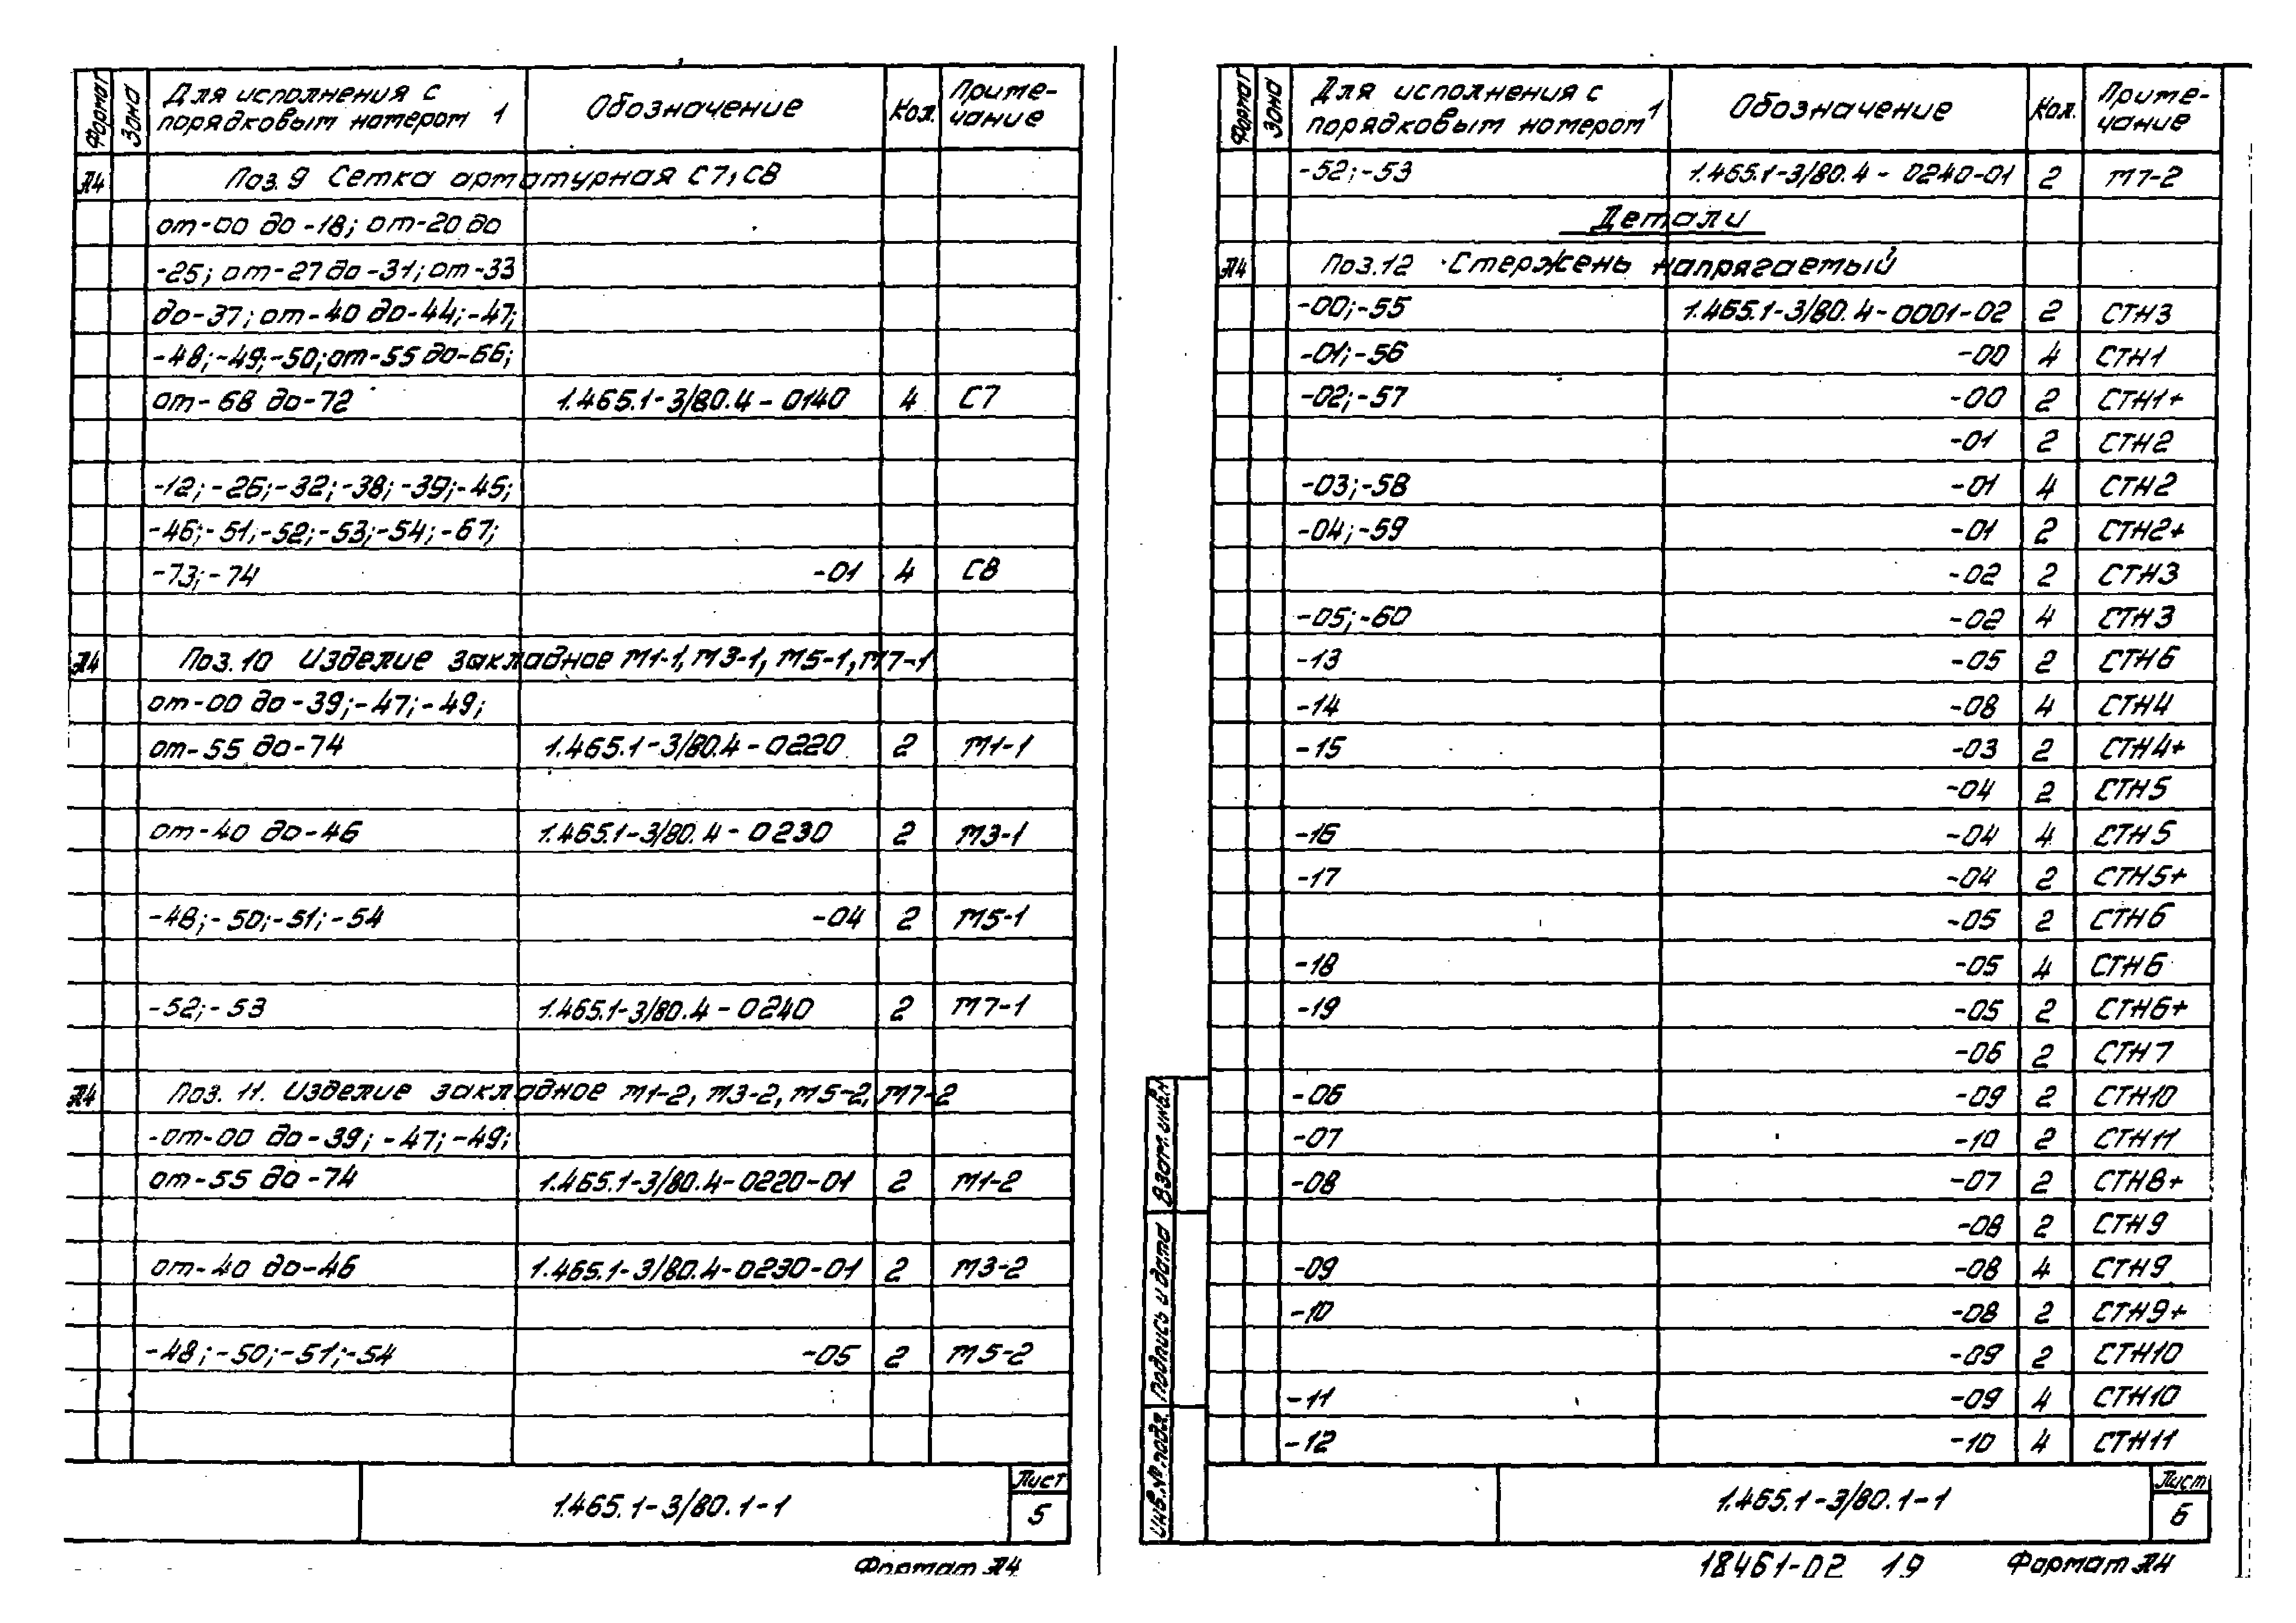 Формат
Зона
Для исполнения с
порядковым номером 1
Обозначение
Кол.
Приме-
чание
А4 Поз. 9 Сетка арматурная С7, С8
от-00 до -18; от-20 до
-25; от-27 до-31; от-33
до-37; от-40 до-44; -47;
-48; -49; -50; от-55 до-66;
от-68 до-72 1.465.1-3/80.4-0140 4 С7
-12; -26; -32; -38; -39; -45;
-46; -51; -52; -53; -54; -67;
-73; -74 -01 4 С8
А4 Поз. 10 Изделие закладное М1-1, М3-1, М5-1, М7-1
от-00 до-39; -47; -49;
от-55 до-74 1.465.1-3/80.4-0220 2 М1-1
от-40 до-46 1.465.1-3/80.4-0230 2 М3-1
-48; -50; -51; -54 -04 2 М5-1
-52; -53 1.465.1-3/80.4-0240 2 М7-1
А4 Поз. 11. Изделие закладное М1-2, М3-2, М5-2, М7-2
-от-00 до-39; -47; -49;
от-55 до-74 1.465.1-3/80.4-0220-01 2 М1-2
от-40 до-46 1.465.1-3/80.4-0230-01 2 М3-2
-48; -50; -51; -54 -05 2 М5-2
1.465.1-3/80.1-1
Лист
5
Формат А4
Формат
Зона
Для исполнения с
порядковым номером 1
Обозначение
Кол.
Приме-
чание
-52; -53 1.465.1-3/80.4-0240-01 2 М7-2
Детали
А4 Поз. 12 Стержень напрягаемый
-00; -55 1.465.1-3/80.4-0001-02 2 СТН3
-01; -56 -00 4 СТН1
-02; -57 -00 2 СТН1+
-01 2 СТН2
-03; -58 -01 4 СТН2
-04; -59 -01 2 СТН2+
-02 2 СТН3
-05; -60 -02 4 СТН3
-13 -05 2 СТН6
-14 -08 4 СТН4
-15 -03 2 СТН4+
-04 2 СТН5
-16 -04 4 СТН5
-17 -04 2 СТН5+
-05 2 СТН6
-18 -05 4 СТН6
-19 -05 2 СТН6+
-06 2 СТН7
-06 -09 2 СТН10
-07 -10 2 СТН11
-08 -07 2 СТН8+
-08 2 СТН9
-09 -08 4 СТН9
-10 -08 2 СТН9+
-09 2 СТН10
-11 -09 4 СТН10
-12 -10 4 СТН11
Взам. инв. №
Подпись и дата
Инв. № подл.
1.465.1-3/80.1-1
Лист
6
18461-02 19 Формат А4